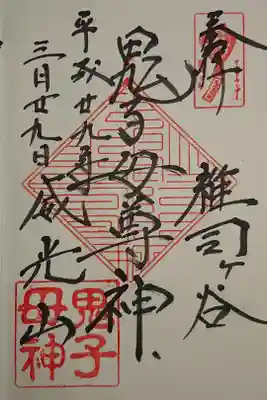 奉拝
雑司ヶ谷
鬼子母尊神
平成廿九年
三月廿九日
威光山
鬼子
母神